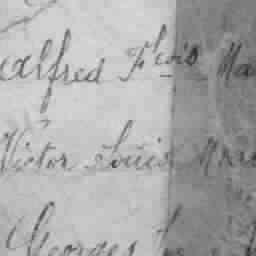 Alfred Flois Ma
Victor Louis Mar
Georges